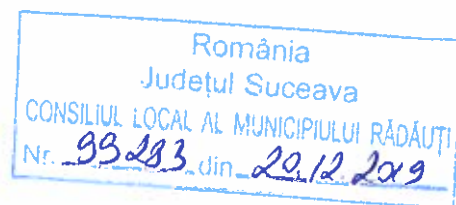 România
Județul Suceava
CONSILIUL LOCAL AL MUNICIPIULUI RĂDĂUȚI
Nr. 99283 din 20.12.2019